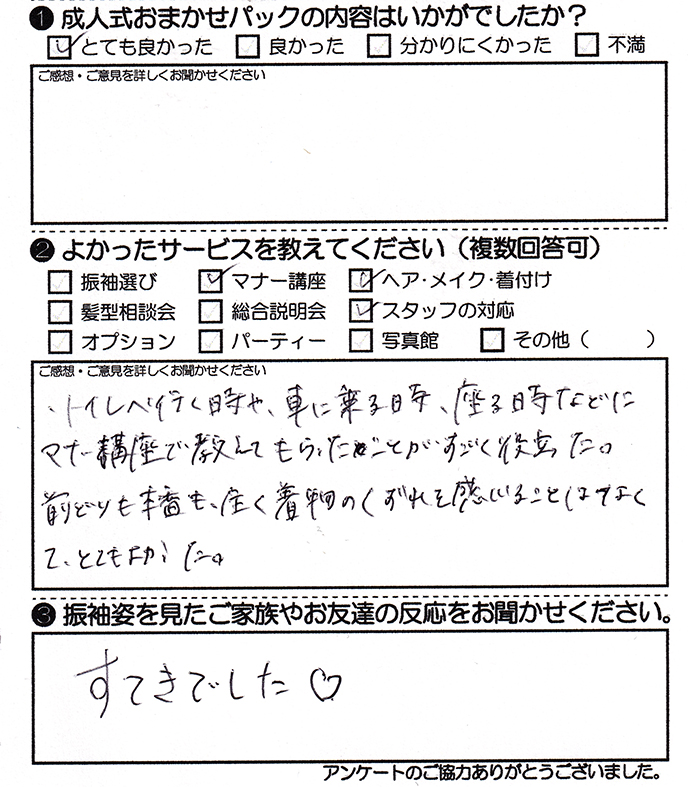 ❶ 成人式おまかせパックの内容はいかがでしたか？
☑とても良かった □良かった □分かりにくかった □不満
ご感想・ご意見を詳しくお聞かせください
❷ よかったサービスを教えてください（複数回答可）
□振袖選び ☑マナー講座 ☑ヘア・メイク・着付け
□髪型相談会 □総合説明会 ☑スタッフの対応
□オプション □パーティー □写真館 □その他（　　）
ご感想・ご意見を詳しくお聞かせください
・トイレへ行く時や、車に乗る時、座る時などに
マナー講座で教えてもらったことがすごく役立った。
前どりも本番も、全く着物のくずれを感じることはなく
て、とてもよかった。
❸ 振袖姿を見たご家族やお友達の反応をお聞かせください。
すてきでした♡
アンケートのご協力ありがとうございました。